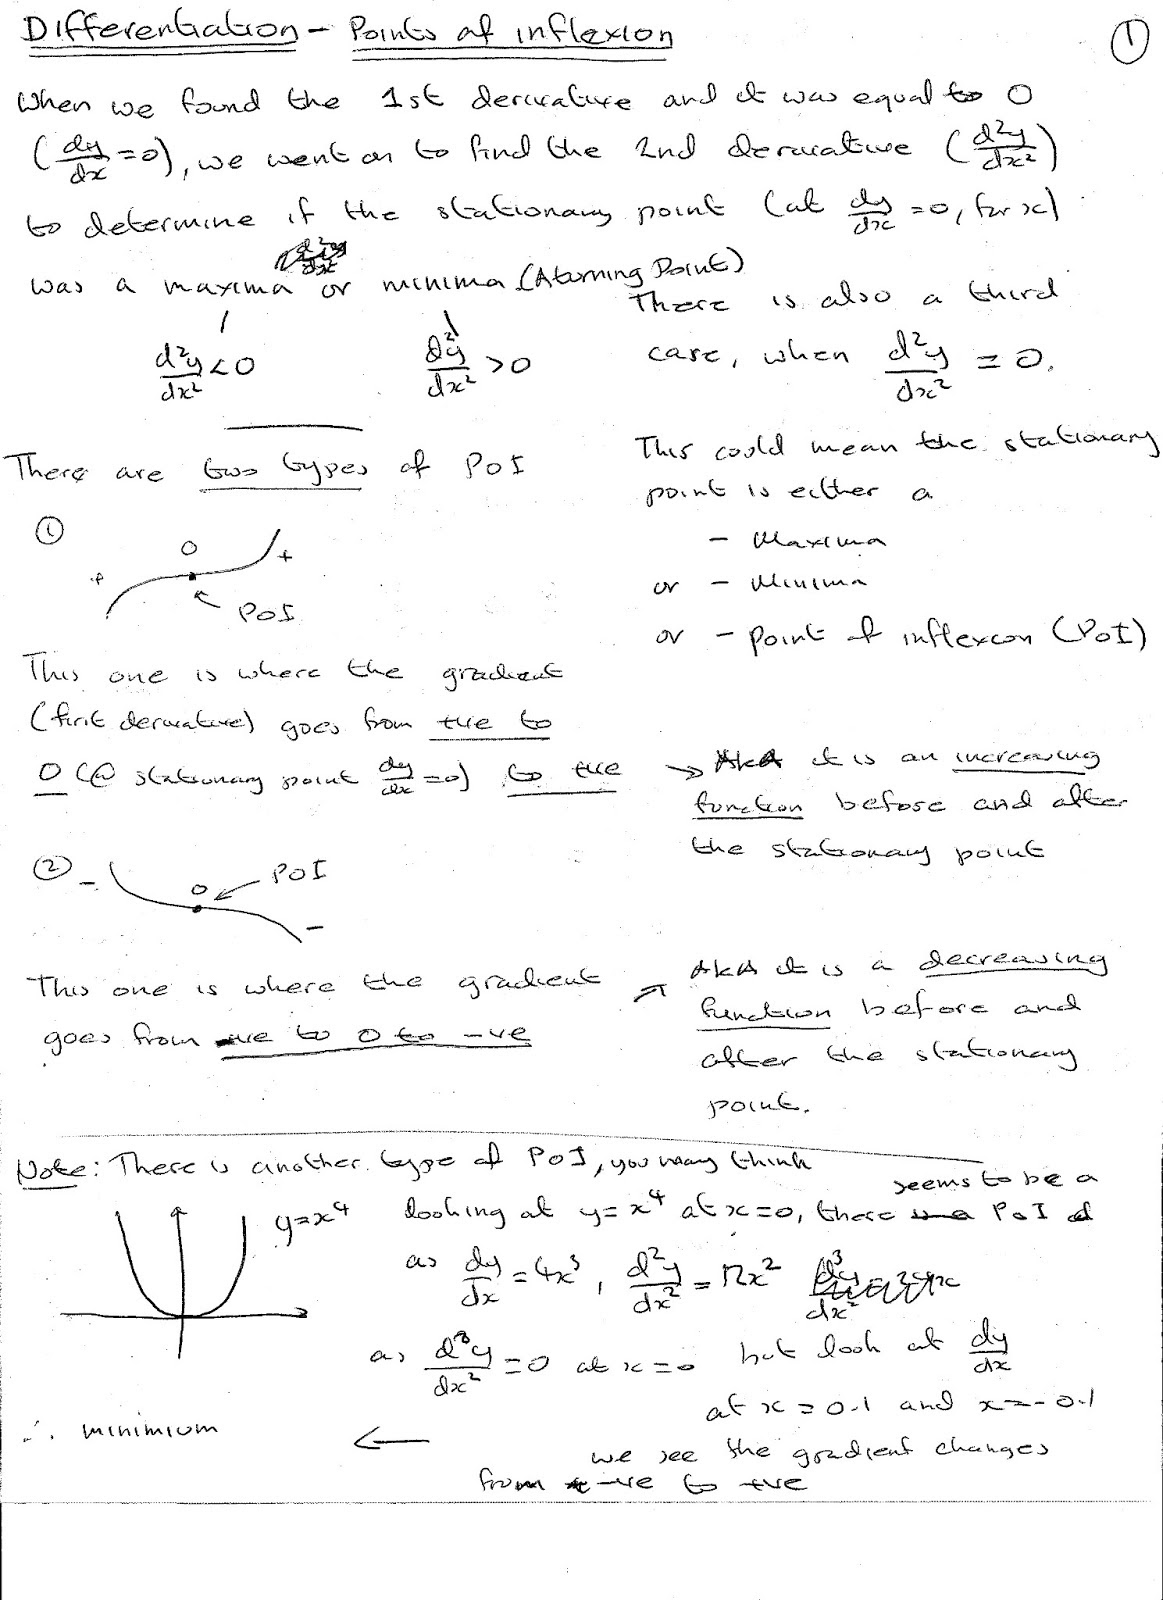 Differentiation - Points of inflexion
①
When we found the 1st derivative and it was equal to 0
(dy/dx = 0), we went on to find the 2nd derivative (d²y/dx²)
to determine if the stationary point (at dy/dx = 0, for x)
was a maxima or minima (A turning Point)
d²y/dx² < 0
d²y/dx² > 0
There is also a third
case, when d²y/dx² = 0.
This could mean the stationary
point is either a
- Maxima
or - Minima
or - point of inflexion (PoI)
There are two types of PoI
①
+ 0 +
PoI
This one is where the gradient
(first derivative) goes from +ve to
0 (@ stationary point dy/dx = 0) to +ve
→ AKA it is an increasing
function before and after
the stationary point
②
- 0 -
PoI
This one is where the gradient
goes from -ve to 0 to -ve
AKA it is a decreasing
function before and
after the stationary
point.
Note: There is another type of PoI, you may think
y=x⁴
looking at y=x⁴ at x=0, there seems to be a PoI
as dy/dx = 4x³, d²y/dx² = 12x²
as d²y/dx² = 0 at x=0 but look at dy/dx
at x=0.1 and x=-0.1
we see the gradient changes
from -ve to +ve
←
∴ minimium